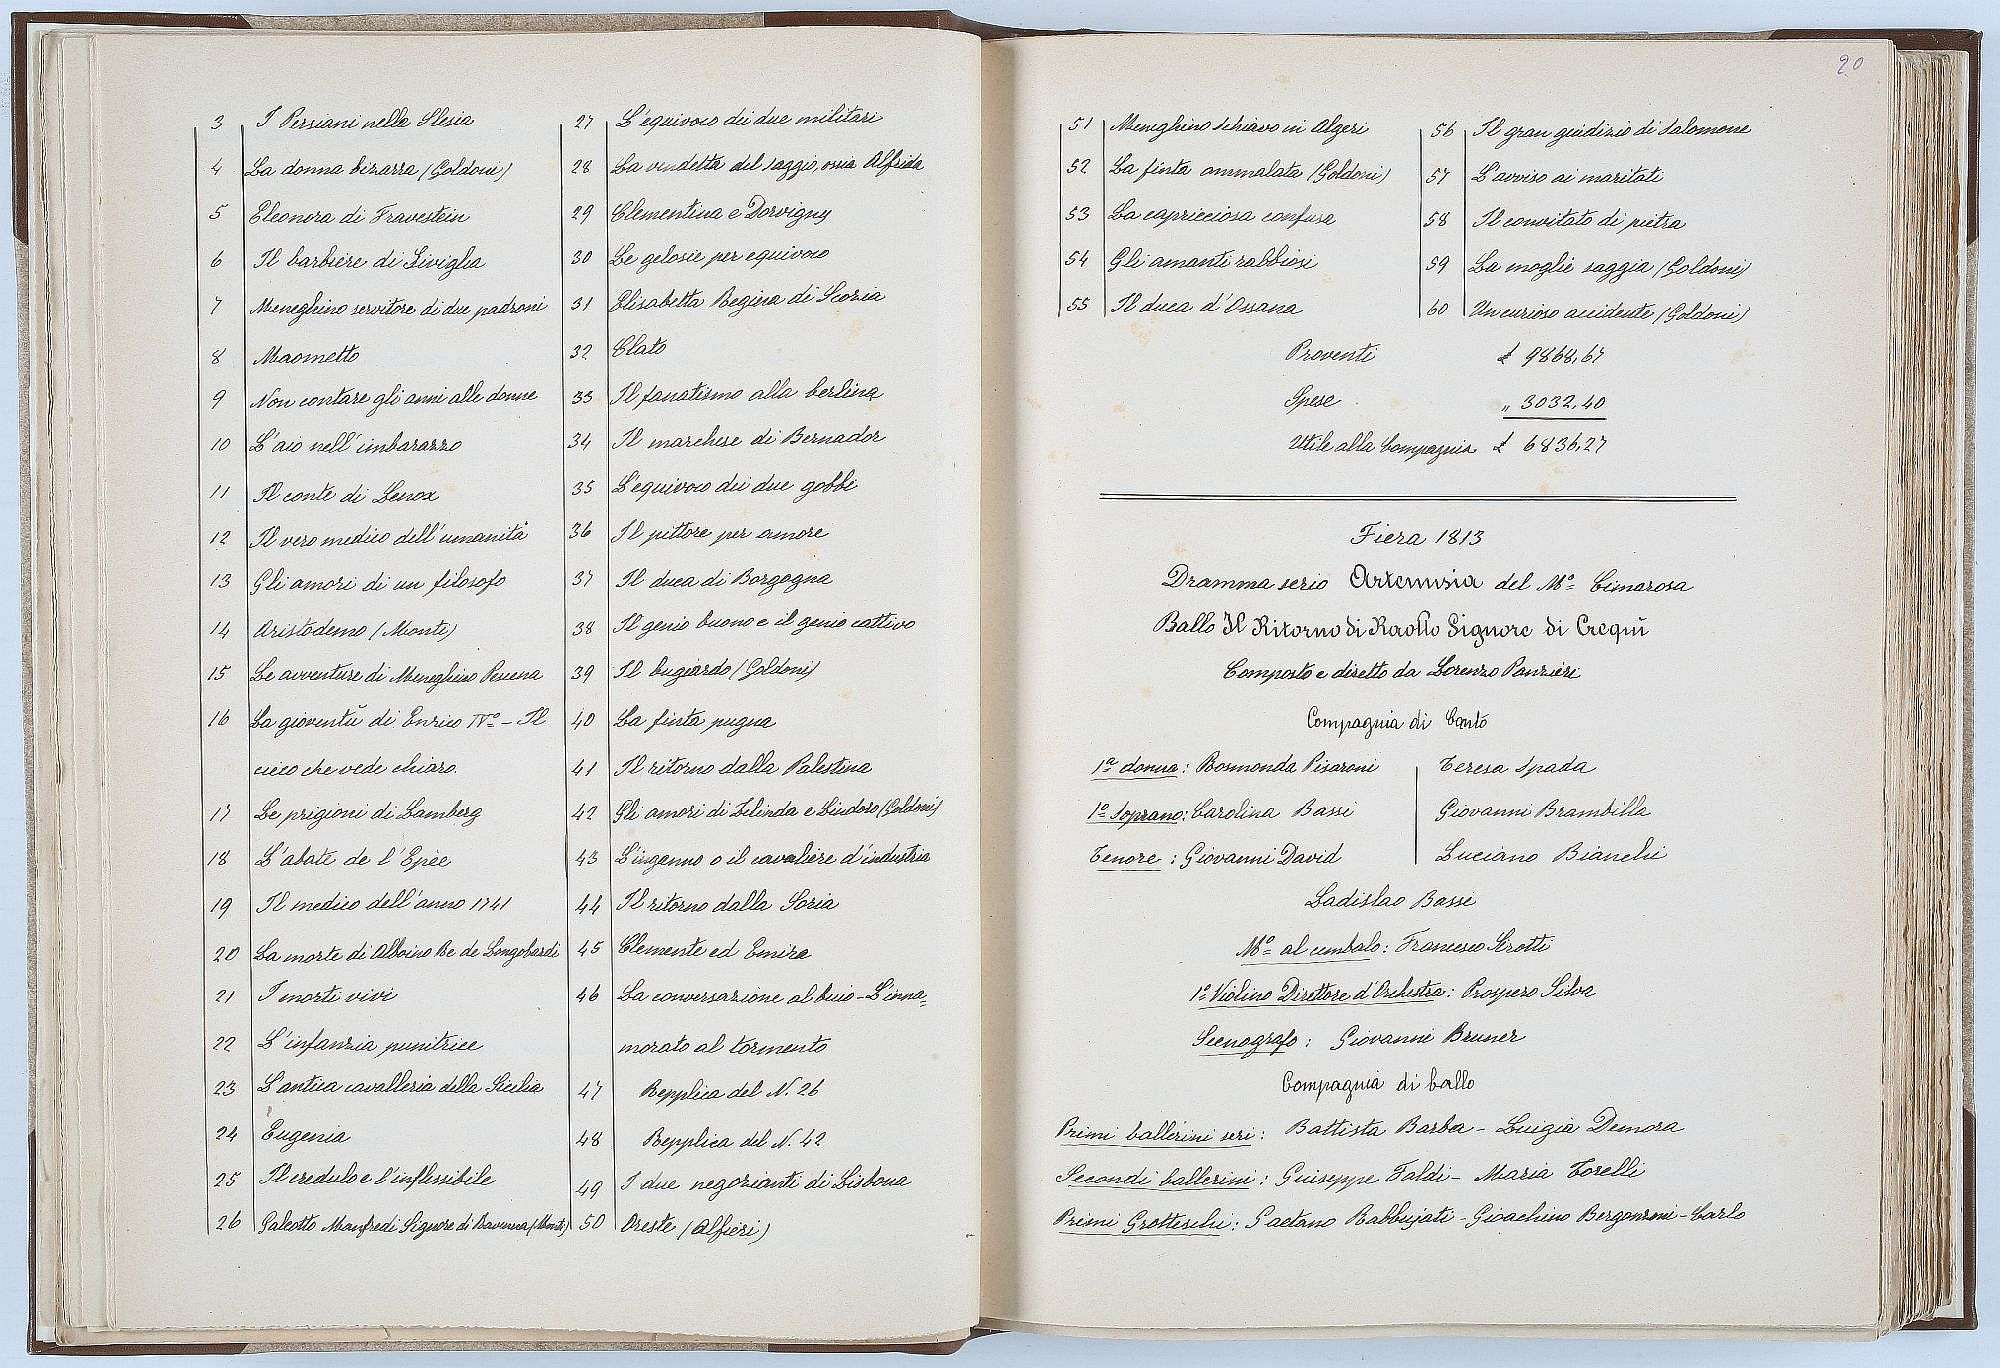 3 I Persiani nella Slesia
4 La donna bizarra (Goldoni)
5 Eleonora di Fravestein
6 Il barbiere di Siviglia
7 Meneghino servitore di due padroni
8 Maometto
9 Non contare gli anni alle donne
10 L'aio nell'imbarazzo
11 Il conte di Lenox
12 Il vero medico dell'umanità
13 Gli amori di un filosofo
14 Aristodemo (Monti)
15 Le avventure di Meneghino Pecena
16 La gioventù di Enrico IVº - Il
cieco che vede chiaro.
17 Le prigioni di Lamberg
18 L'abate de l'Epèe
19 Il medico dell'anno 1741
20 La morte di Alboino Re de Longobardi
21 I morti vivi
22 L'infanzia punitrice
23 L'antica cavalleria della Sicilia
24 Eugenia
25 Il credulo e l'inflessibile
26 Galeotto Manfredi Signore di Ravenna (Monti)
27 L'equivoco dei due militari
28 La vendetta del saggio, ossia Alfrida
29 Clementina e Dorvigny
30 Le gelosie per equivoco
31 Elisabetta Regina di Scozia
32 Clato
33 Il fanatismo alla berlina
34 Il marchese di Bernador
35 L'equivoco dei due gobbi
36 Il pittore per amore
37 Il duca di Borgogna
38 Il genio buono e il genio cattivo
39 Il bugiardo (Goldoni)
40 La finta pugna
41 Il ritorno dalla Palestina
42 Gli amori di Zelinda e Lindoro (Goldoni)
43 L'inganno o il cavaliere d'industria
44 Il ritorno dalla Soria
45 Clemente ed Emira
46 La conversazione al buio - L'inna=
morato al tormento
47 Repplica del N. 26
48 Repplica del N. 42
49 I due negozianti di Lisbona
50 Oreste (Alfieri)
20
51 Meneghino schiavo in Algeri
52 La finta ammalata (Goldoni)
53 La capricciosa confusa
54 Gli amanti rabbiosi
55 Il duca d'Ossana
56 Il gran giudizio di Salomone
57 L'avviso ai maritati
58 Il convitato di pietra
59 La moglie saggia (Goldoni)
60 Un curioso accidente (Goldoni)
Proventi £ 9868,67
Spese „ 3032,40
Utile alla Compagnia £ 6836,27
Fiera 1813
Dramma serio Artemisia del Mº Cimarosa
Ballo Il Ritorno di Raollo Signore di Crequì
Composto e diretto da Lorenzo Panzieri
Compagnia di Canto
1ª donna: Rosmonda Pisaroni
1º Soprano: Carolina Bassi
Tenore: Giovanni David
Teresa Spada
Giovanni Brambilla
Luciano Bianchi
Ladislao Bassi
Mº al cembalo: Francesco Strotti
1º Violino Direttore d'Orchestra: Prospero Silva
Scenografo: Giovanni Bruner
Compagnia di ballo
Primi ballerini seri: Battista Barba - Luigia Demora
Secondi ballerini: Guiseppe Faldi - Maria Torelli
Primi Grotteschi: Gaetano Rabbujati - Gioachino Bergonzoni - Carlo